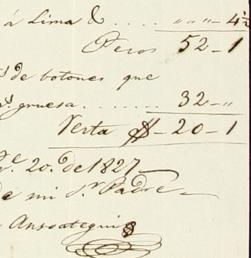 á Lima & .... " " " - 4½
Pesos 52-1
s de botones que
gruesa ........ 32-"
Resta $ - 20-1
e. 20. de 1827-
de mi Sr. Padre-
Ansoategui